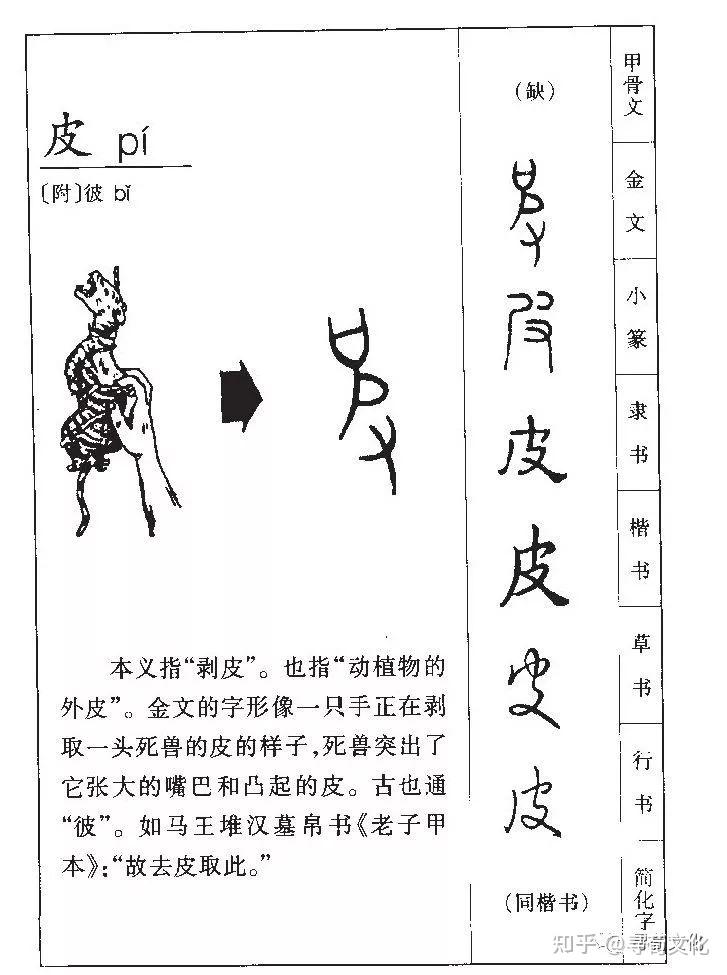 皮 pí
〔附〕彼 bǐ
本义指“剥皮”。也指“动植物的
外皮”。金文的字形像一只手正在剥
取一头死兽的皮的样子,死兽突出了
它张大的嘴巴和凸起的皮。古也通
“彼”。如马王堆汉墓帛书《老子甲
本》:“故去皮取此。”
(缺)
甲骨文
金文
小篆
皮
隶书
皮
楷书
皮
草书
皮
行书
(同楷书)
简化字
知乎 @寻荀文化